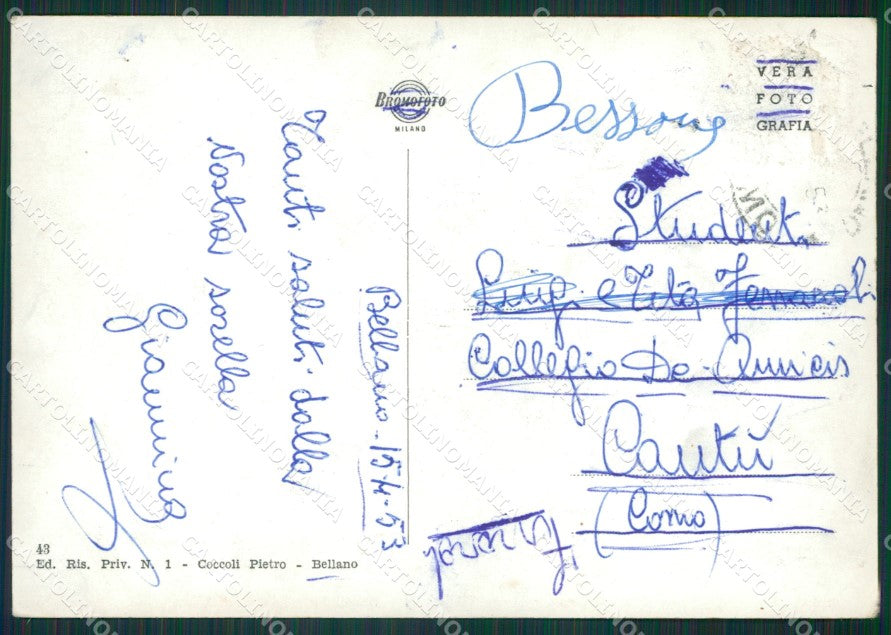 Bellano. 15-4-53
Tanti saluti dalla
Vostra sorella
Giannina
BROMOFOTO
MILANO
VERA
FOTO
GRAFIA
Bessone
Studenti
Luigi e Tita
Collegio De-Amicis
Cantù
(Como)
43
Ed. Ris. Priv. N. 1 - Coccoli Pietro - Bellano
CARTOLINOMANIA